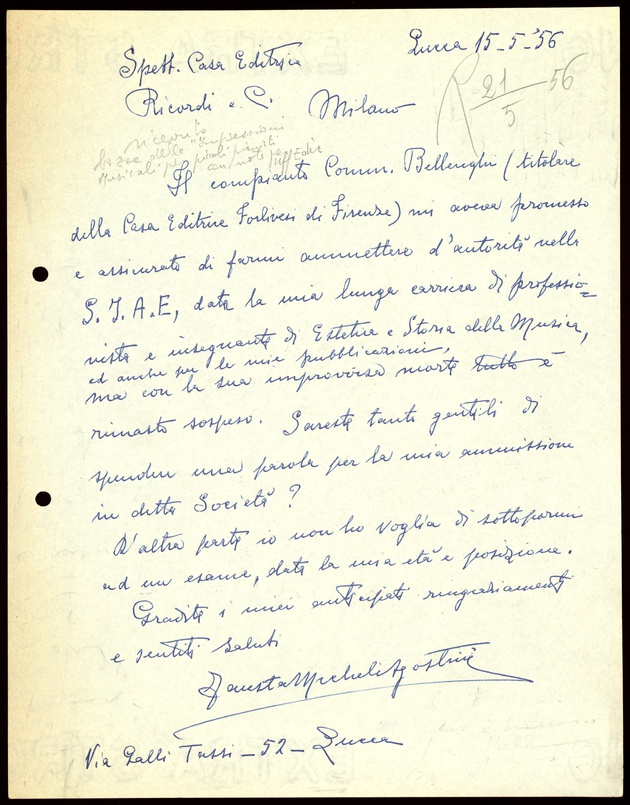 Lucca 15-5-'56
Spett. Casa Editrice
Ricordi e C. Milano
R 21/5 56
ricevuto
delle "Impressioni
Musicali" per piccoli pianisti
Il compianto Comm. Bellenghi (titolare
della Casa Editrice Forlivesi di Firenze) mi aveva promesso
e assicurato di farmi ammettere d'autorità nella
S.I.A.E, data la mia lunga carriera di professio=
nista e insegnante di Estetica e Storia della Musica,
ed anche per le mie pubblicazioni,
ma con la sua improvvisa morte tutto è
rimasto sospeso. Sareste tanto gentili di
spendere una parola per la mia ammissione
in detta Società?
D'altra parte io non ho voglia di sottopormi
ad un esame, data la mia età e posizione.
Gradite i miei anticipati ringraziamenti
e sentiti saluti
Fausta Micheli Agostini
Via Galli Tassi - 52 - Lucca